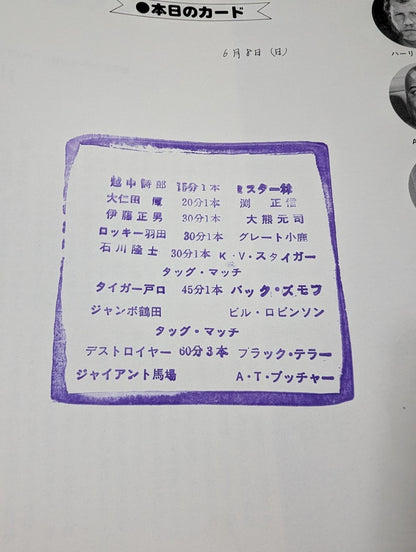 ●本日のカード
6月8日(日)
ハーリ
越中詩郎 15分1本 ミスター林
大仁田厚 20分1本 渕正信
伊藤正男 30分1本 大熊元司
ロッキー羽田 30分1本 グレート小鹿
石川隆士 30分1本 K・V・スタイガー
タッグ・マッチ
タイガー戸口 45分1本 バック・ズモフ
ジャンボ鶴田 ビル・ロビンソン
タッグ・マッチ
デストロイヤー 60分3本 ブラック・テラー
ジャイアント馬場 A・T・ブッチャー